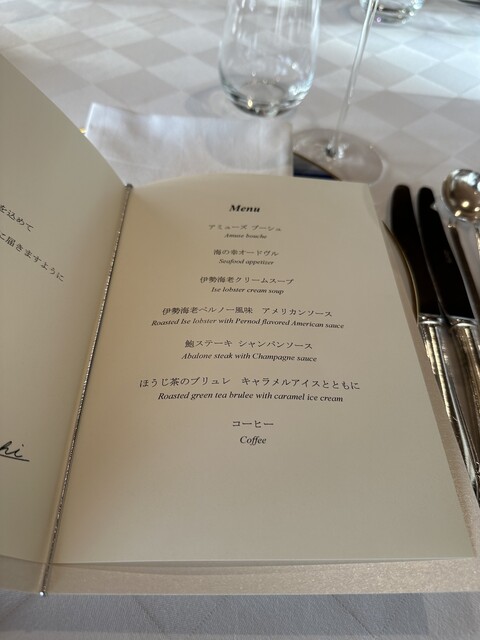 を込めて
に届きますように
hi
Menu
アミューズ ブーシュ
Amuse bouche
海の幸オードヴル
Seafood appetizer
伊勢海老クリームスープ
Ise lobster cream soup
伊勢海老ペルノー風味 アメリカンソース
Roasted Ise lobster with Pernod flavored American sauce
鮑ステーキ シャンパンソース
Abalone steak with Champagne sauce
ほうじ茶のブリュレ キャラメルアイスとともに
Roasted green tea brulee with caramel ice cream
コーヒー
Coffee